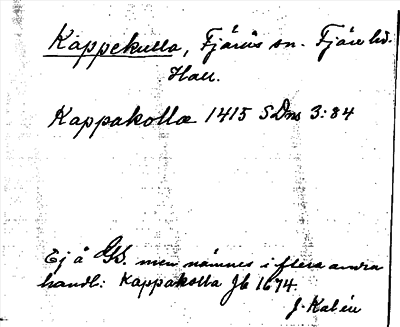 Kappekulla, Fjärås sn. Fjäre hd.
Hall.
Kappakolla 1415 SDns 3:84
Ej å GK. men nämnes i flera andra
handl: Kappakolla Jb 1674.
J. Kalén